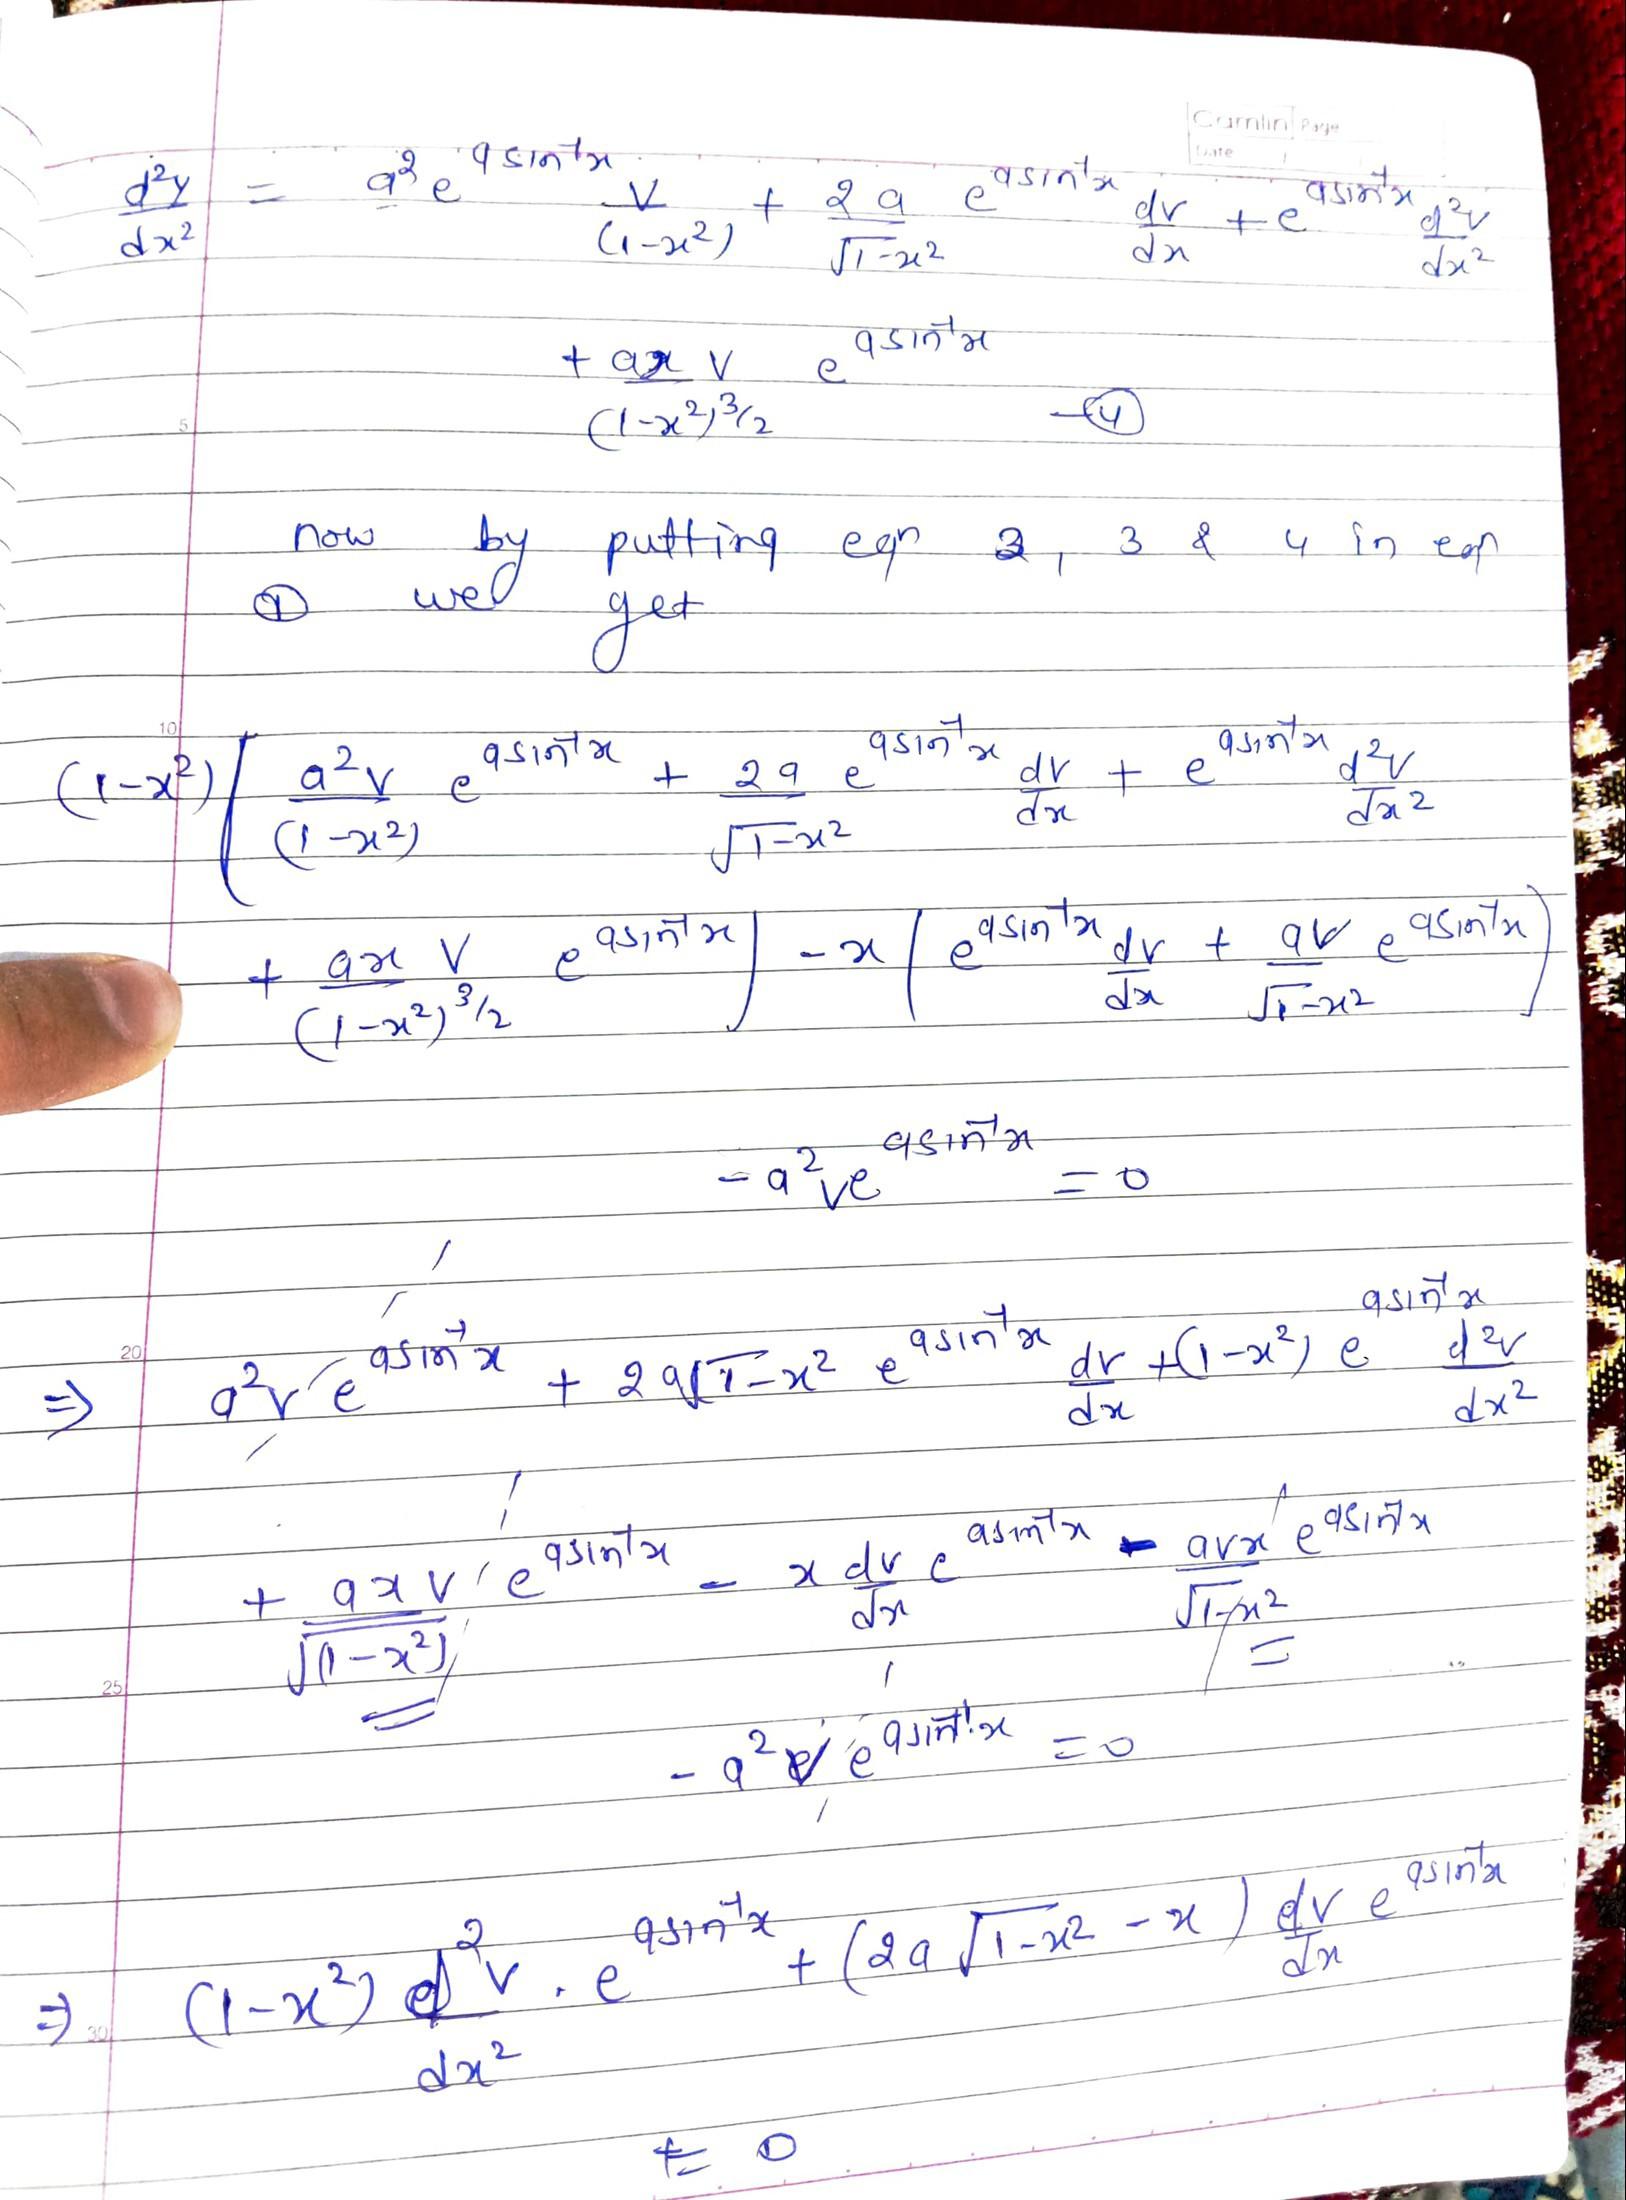 Camlin Page
Date / /
d²y/dx² = a² e^(a sin⁻¹x) v/(1-x²) + 2a/√(1-x²) e^(a sin⁻¹x) dv/dx + e^(a sin⁻¹x) d²v/dx²
+ ax v/(1-x²)^(3/2) e^(a sin⁻¹x) —④
5
now by putting eqn 2, 3 & 4 in eqn
① we get
10
(1-x²) ( a²v/(1-x²) e^(a sin⁻¹x) + 2a/√(1-x²) e^(a sin⁻¹x) dv/dx + e^(a sin⁻¹x) d²v/dx²
+ ax v/(1-x²)^(3/2) e^(a sin⁻¹x) ) - x ( e^(a sin⁻¹x) dv/dx + av/√(1-x²) e^(a sin⁻¹x) )
- a²v e^(a sin⁻¹x) = 0
20
⇒ a²v e^(a sin⁻¹x) + 2a√(1-x²) e^(a sin⁻¹x) dv/dx + (1-x²) e^(a sin⁻¹x) d²v/dx²
+ axv/√(1-x²) e^(a sin⁻¹x) - x dv/dx e^(a sin⁻¹x) - avx/√(1-x²) e^(a sin⁻¹x)
25
- a²v e^(a sin⁻¹x) = 0
⇒ (1-x²) d²v/dx² . e^(a sin⁻¹x) + (2a√(1-x²) - x) dv/dx e^(a sin⁻¹x)
30
= 0